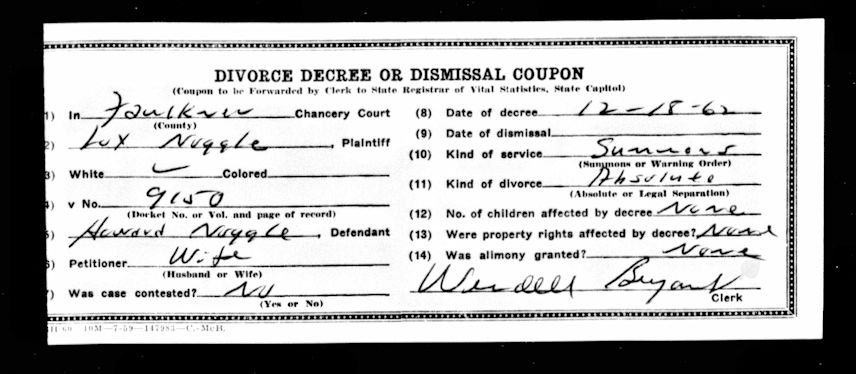 DIVORCE DECREE OR DISMISSAL COUPON
(Coupon to be Forwarded by Clerk to State Registrar of Vital Statistics, State Capitol)
1) In Faulkner Chancery Court
(County)
2) Lux Noggle, Plaintiff
3) White ✓ Colored
4) v No. 9150
(Docket No. or Vol. and page of record)
5) Howard Noggle, Defendant
6) Petitioner Wife
(Husband or Wife)
7) Was case contested? No
(Yes or No)
(8) Date of decree 12-18-62
(9) Date of dismissal
(10) Kind of service Summons
(Summons or Warning Order)
(11) Kind of divorce Absolute
(Absolute or Legal Separation)
(12) No. of children affected by decree None
(13) Were property rights affected by decree? None
(14) Was alimony granted? None
Wendell Bryant
Clerk
10M—7-59—147983—C.-McB.